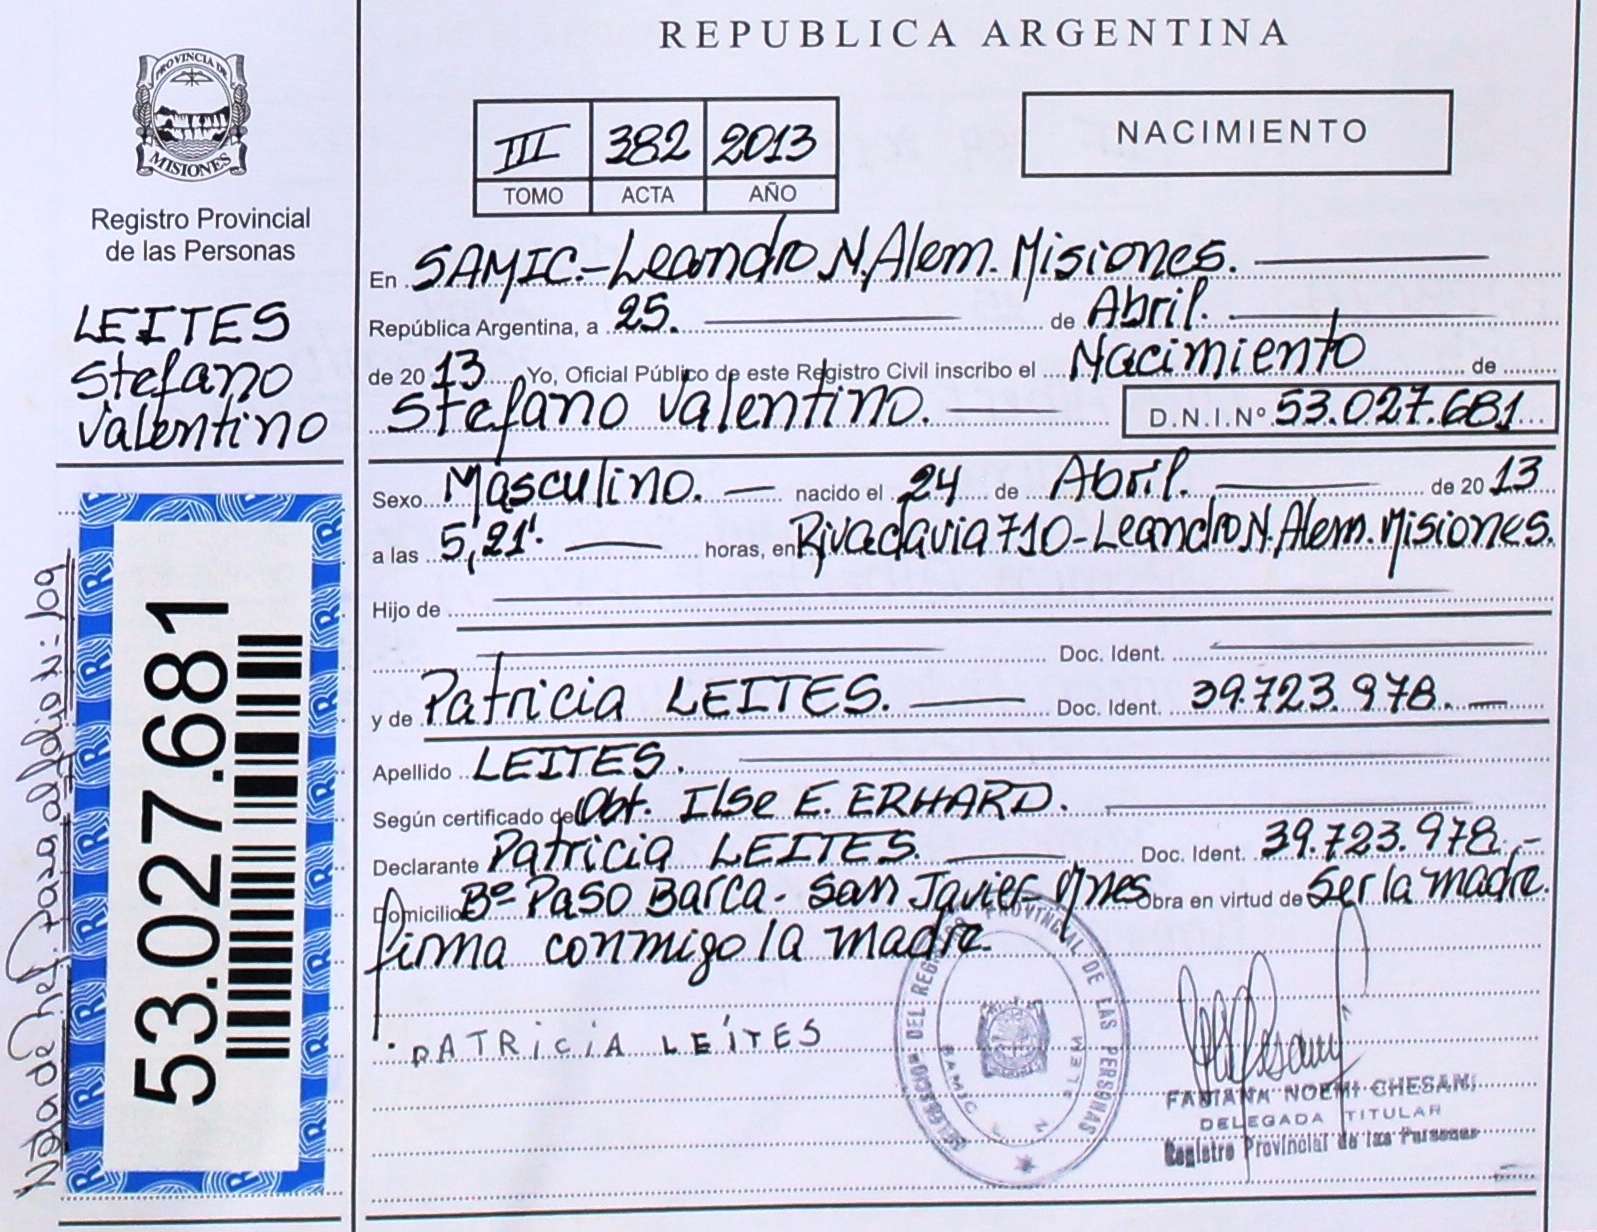 REPUBLICA ARGENTINA
PROVINCIA DE
MISIONES
Registro Provincial
de las Personas
LEITES
Stefano
Valentino
53.027.681
Nota de Ref. Folio N: 109
III 382 2013
TOMO ACTA AÑO
NACIMIENTO
En SAMIC.-Leandro N. Alem. Misiones.
República Argentina, a 25. de Abril.
de 2013 Yo, Oficial Público de este Registro Civil inscribo el Nacimiento de
Stefano Valentino. D.N.I.Nº 53.027.681
Sexo Masculino. nacido el 24 de Abril. de 2013
a las 5,21'. horas, en Rivadavia 710-Leandro N. Alem. Misiones.
Hijo de
Doc. Ident.
y de Patricia LEITES. Doc. Ident. 39.723.978.
Apellido LEITES.
Según certificado de Obt. Ilse E. ERHARD.
Declarante Patricia LEITES. Doc. Ident. 39.723.978.-
Domicilio Bº Paso Barca - San Javier - Mnes Obra en virtud de Ser la madre.
firma conmigo la madre.
PATRICIA LEITES
REGISTRO PROVINCIAL DE LAS PERSONAS
SAMIC L N ALEM
FABIANA NOEMI CHESANI
DELEGADA TITULAR
Registro Provincial de las Personas